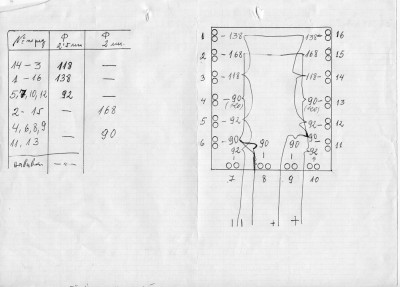 № перед Ф 2.5 мм Ф 2 мм.
14 - 3 118 —
1 - 16 138 —
5, 7, 10, 12 92 —
2 - 15 — 168
4, 6, 8, 9
11, 13 — 90
1 - 138 138 - 16
2 - 168 168 - 15
3 - 118 118 - 14
4 - 90 90 - 13
5 - 92 92 - 12
6 - 90 90 90 90 - 11
92 92
7 8 9 10
- + +